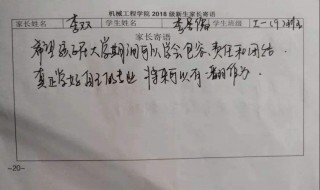 机械工程学院 2018 级新生家长寄语
家长姓名 李双 学生姓名 李 学生班级
家长寄语
希望孩子在大学期间可以学会包容、责任和团结.
真正学好自己的专业 将来可以有一番作为.
-20-